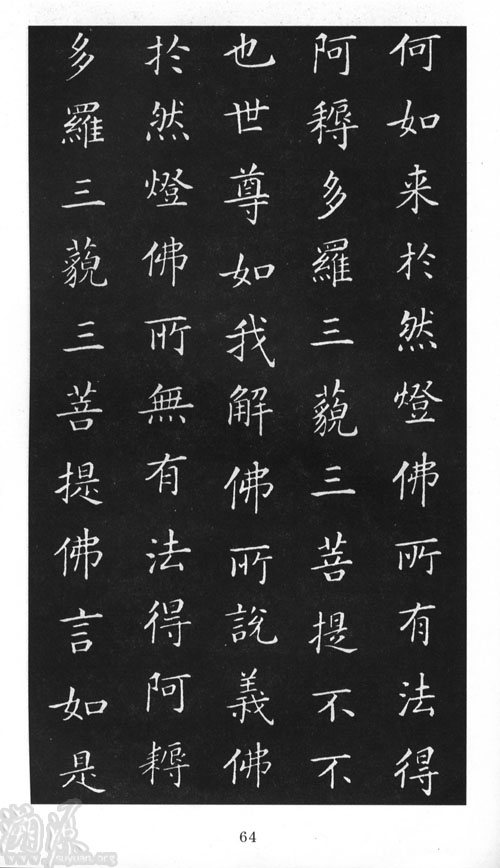 何如来於然燈佛所有法得
阿耨多羅三藐三菩提不不
也世尊如我解佛所說義佛
於然燈佛所無有法得阿耨
多羅三藐三菩提佛言如是
64
溯源
www.suyuan.org